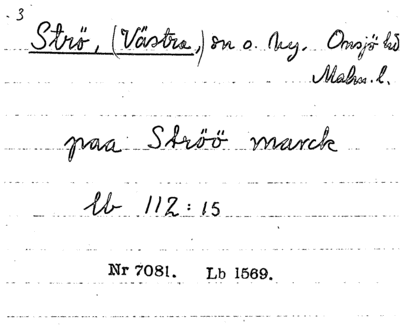 3
Strö, (Västra,) sn o. by. Onsjö hd
Malm. l.
paa Ströö marck
lb 112:15
Nr 7081. Lb 1569.